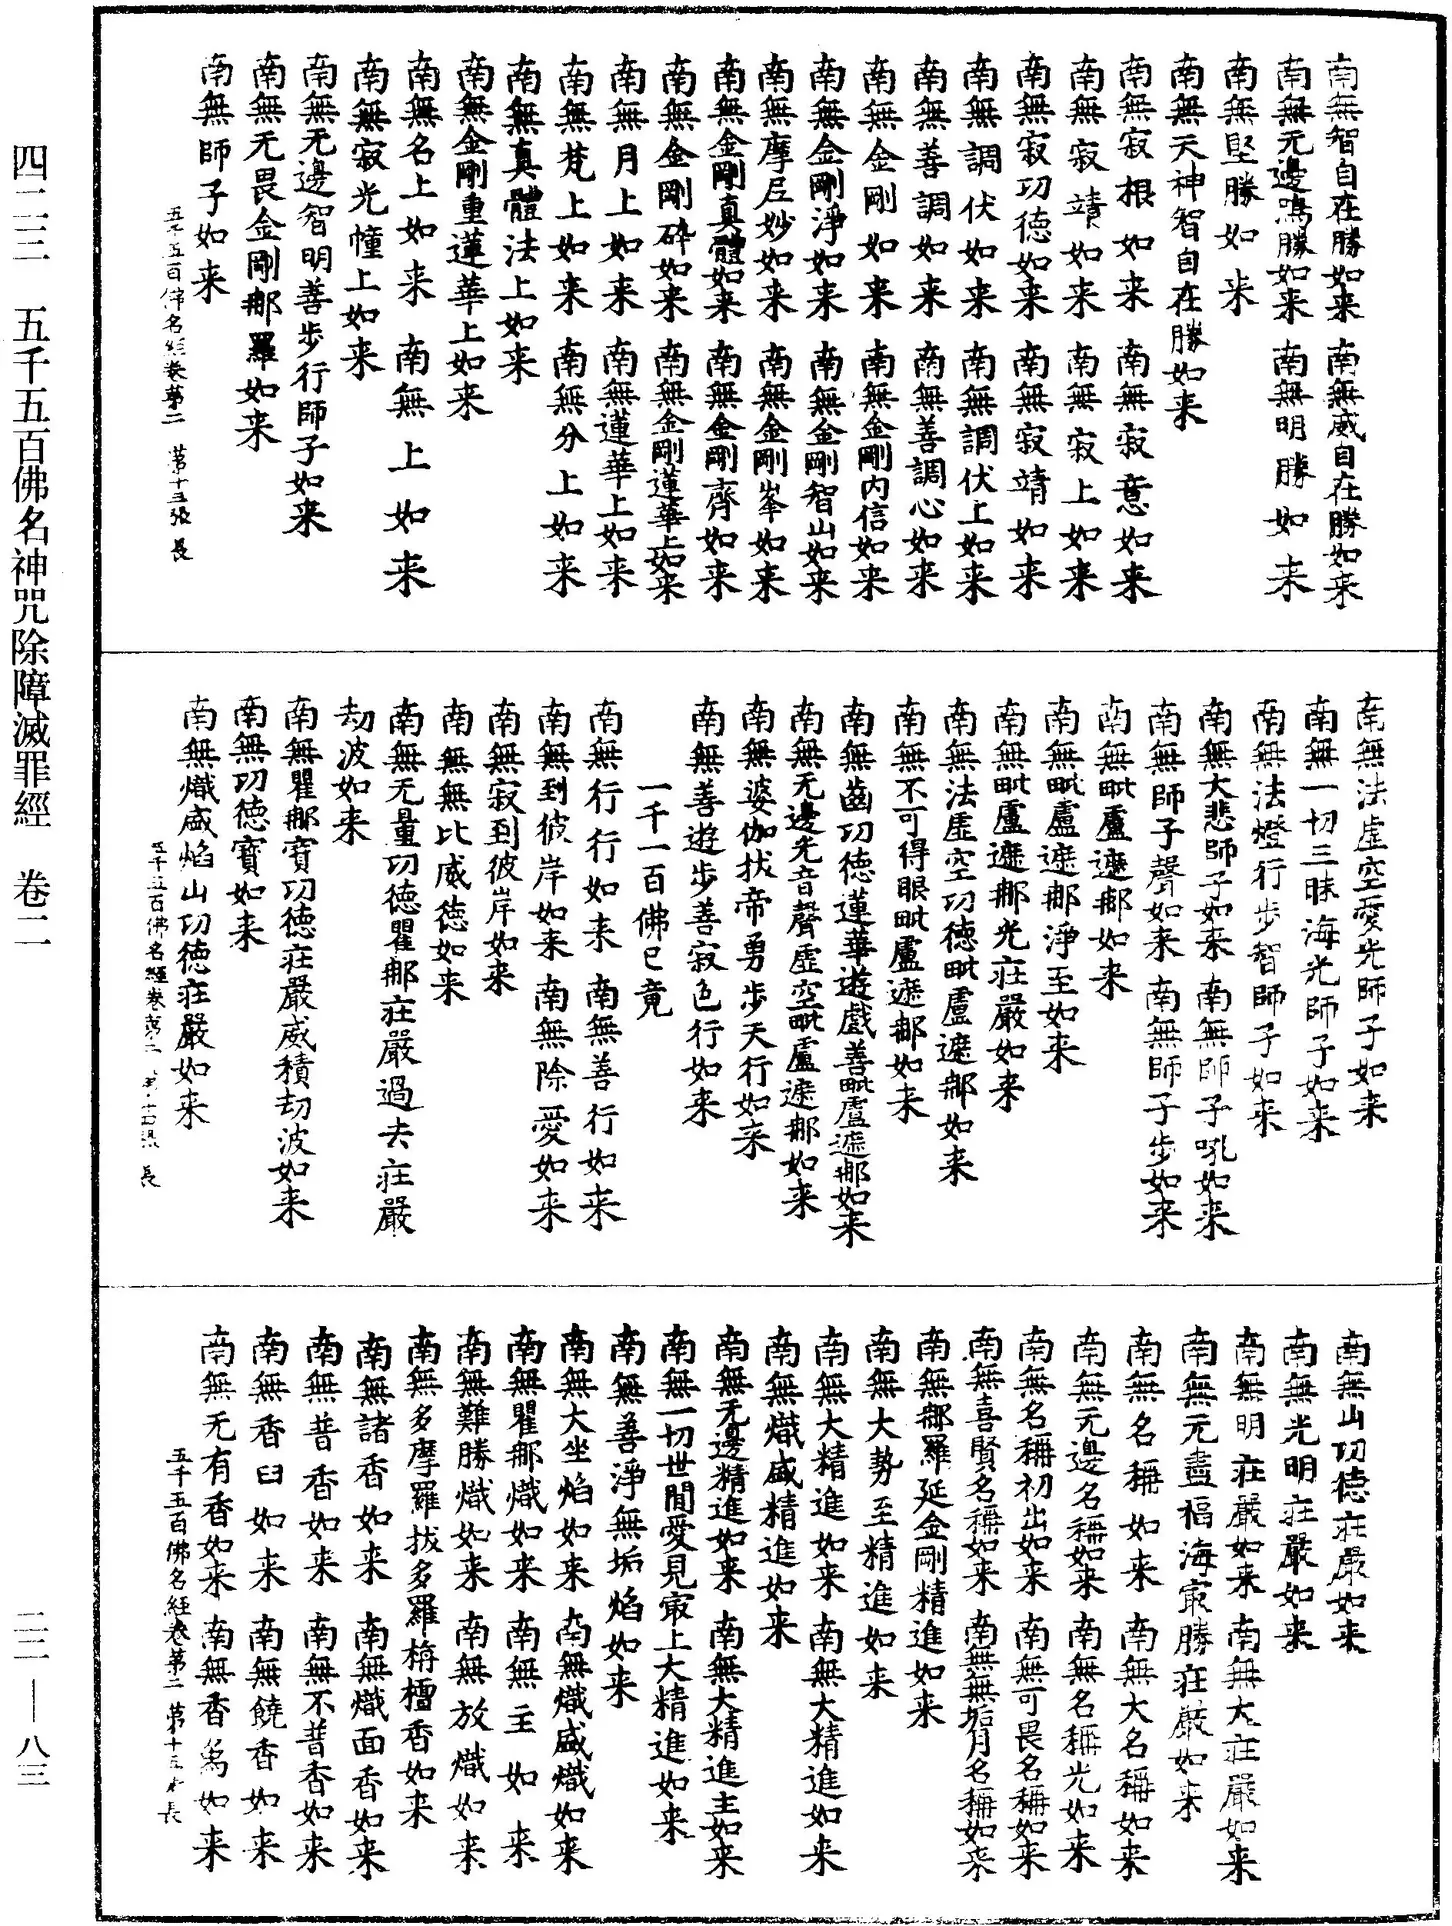 南無智自在勝如来 南無威自在勝如来
南無无邊鳴勝如来 南無明勝如来
南無堅勝如来
南無天神智自在勝如来
南無寂根如来 南無寂意如来
南無寂靖如来 南無寂上如来
南無寂功德如来 南無寂靖如来
南無調伏如来 南無調伏上如来
南無善調如来 南無善調心如来
南無金剛如来 南無金剛内信如来
南無金剛淨如来 南無金剛智山如来
南無摩尼妙如来 南無金剛峯如来
南無金剛真體如来 南無金剛齊如来
南無金剛碎如来 南無金剛蓮華上如来
南無月上如来 南無蓮華上如来
南無梵上如来 南無分上如来
南無真體法上如来
南無金剛重蓮華上如来
南無名上如来 南無上如来
南無寂光幢上如来
南無无邊智明善步行師子如来
南無无畏金剛那羅如来
南無師子如来
五千五百佛名經卷第二 第十三張 長
南無法虛空愛光師子如来
南無一切三昧海光師子如来
南無法燈行步智師子如来
南無大悲師子如来 南無師子吼如来
南無師子聲如来 南無師子步如来
南無毗盧遮那如来
南無毗盧遮那淨至如来
南無毗盧遮那光莊嚴如来
南無法虛空功德毗盧遮那如来
南無不可得眼毗盧遮那如来
南無齒功德蓮華遊戲善毗盧遮那如来
南無无邊光音聲虛空毗盧遮那如来
南無婆伽扙帝勇步天行如来
南無善遊步善寂色行如来
一千一百佛已竟
南無行行如来 南無善行如来
南無到彼岸如来 南無除愛如来
南無寂到彼岸如来
南無無比威德如来
南無无量功德瞿那莊嚴過去莊嚴
劫波如来
南無瞿那寶功德莊嚴威積劫波如来
南無功德寶如来
南無熾盛焰山功德莊嚴如来
五千五百佛名經卷第二 長
南無山功德莊嚴如来
南無光明莊嚴如来
南無明莊嚴如来 南無大莊嚴如来
南無无盡福海㝡勝莊嚴如来
南無名稱如来 南無大名稱如来
南無无邊名稱如来 南無名稱光如来
南無名稱初出如来 南無可畏名稱如来
南無喜賢名稱如来 南無無垢月名稱如来
南無那羅延金剛精進如来
南無大勢至精進如来
南無大精進如来 南無大精進如来
南無熾盛精進如来
南無无邊精進如来 南無大精進主如来
南無一切世閒愛見㝡上大精進如来
南無善淨無垢焰如来
南無大坐焰如来 南無熾盛熾如来
南無瞿那熾如来 南無主如来
南無難勝熾如来 南無放熾如来
南無多摩羅拔多羅栴檀香如来
南無諸香如来 南無熾面香如来
南無普香如来 南無不普香如来
南無香臼如来 南無饒香如来
南無无有香如来 南無香為如来
五千五百佛名經卷第二 第十五 長
四二三 五千五百佛名神咒除障滅罪經 卷二
二二——八三